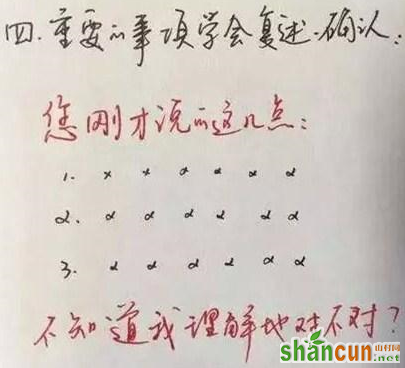 四.重要的事项学会复述.确认:
您刚才说的这几点:
1. x x α α α α
2. α α α α α α
3. α α α α α α
不知道我理解地对不对?
shancun 山村网
.net